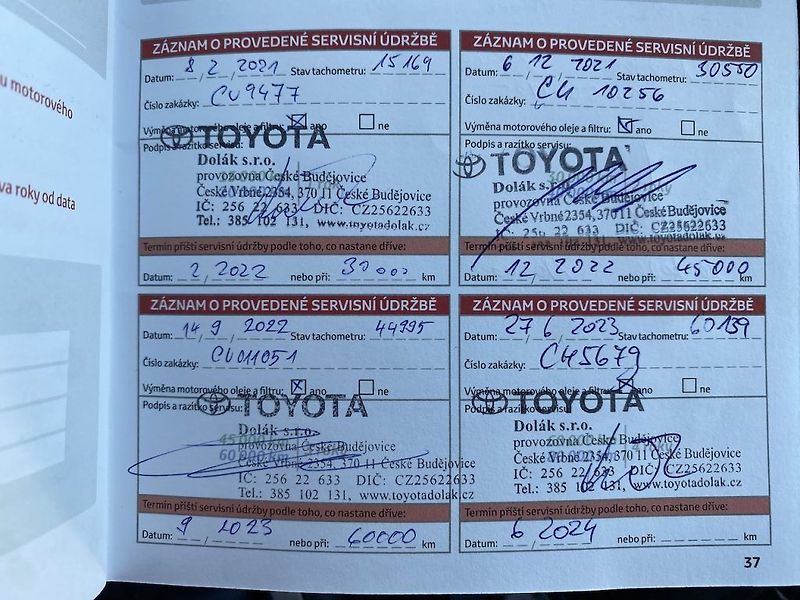 u motorového
va roky od data
ZÁZNAM O PROVEDENÉ SERVISNÍ ÚDRŽBĚ
Datum: 8 / 2 / 2021 Stav tachometru: 15169
Číslo zakázky: CU9477
Výměna motorového oleje a filtru: ano ne
Podpis a razítko servisu:
TOYOTA
Dolák s.r.o.
provozovna České Budějovice
České Vrbné 2354, 370 11 České Budějovice
IČ: 256 22 633 DIČ: CZ25622633
Tel.: 385 102 131, www.toyotadolak.cz
Termín příští servisní údržby podle toho, co nastane dříve:
Datum: 2 / 2022 nebo při: 30000 km
ZÁZNAM O PROVEDENÉ SERVISNÍ ÚDRŽBĚ
Datum: 6 / 12 / 2021 Stav tachometru: 30550
Číslo zakázky: CU 10256
Výměna motorového oleje a filtru: ano ne
Podpis a razítko servisu:
TOYOTA
Dolák s.r.o.
provozovna České Budějovice
České Vrbné 2354, 370 11 České Budějovice
IČ: 256 22 633 DIČ: CZ25622633
131, www.toyotadolak.cz
Termín příští servisní údržby podle toho, co nastane dříve:
Datum: 12 / 2022 nebo při: 45000 km
ZÁZNAM O PROVEDENÉ SERVISNÍ ÚDRŽBĚ
Datum: 14 / 9 / 2022 Stav tachometru: 44995
Číslo zakázky: CU011051
Výměna motorového oleje a filtru: ano ne
Podpis a razítko servisu:
TOYOTA
Dolák s.r.o.
provozovna České Budějovice
České Vrbné 2354, 370 11 České Budějovice
IČ: 256 22 633 DIČ: CZ25622633
Tel.: 385 102 131, www.toyotadolak.cz
Termín příští servisní údržby podle toho, co nastane dříve:
Datum: 9 / 2023 nebo při: 60000 km
ZÁZNAM O PROVEDENÉ SERVISNÍ ÚDRŽBĚ
Datum: 27 / 6 / 2023 Stav tachometru: 60139
Číslo zakázky: CH5679
Výměna motorového oleje a filtru: ano ne
Podpis a razítko servisu:
TOYOTA
Dolák s.r.o.
provozovna České Budějovice
České Vrbné 2354, 370 11 České Budějovice
IČ: 256 22 633 DIČ: CZ25622633
Tel.: 385 102 131, www.toyotadolak.cz
Termín příští servisní údržby podle toho, co nastane dříve:
Datum: 6 / 2024 nebo při: km
37